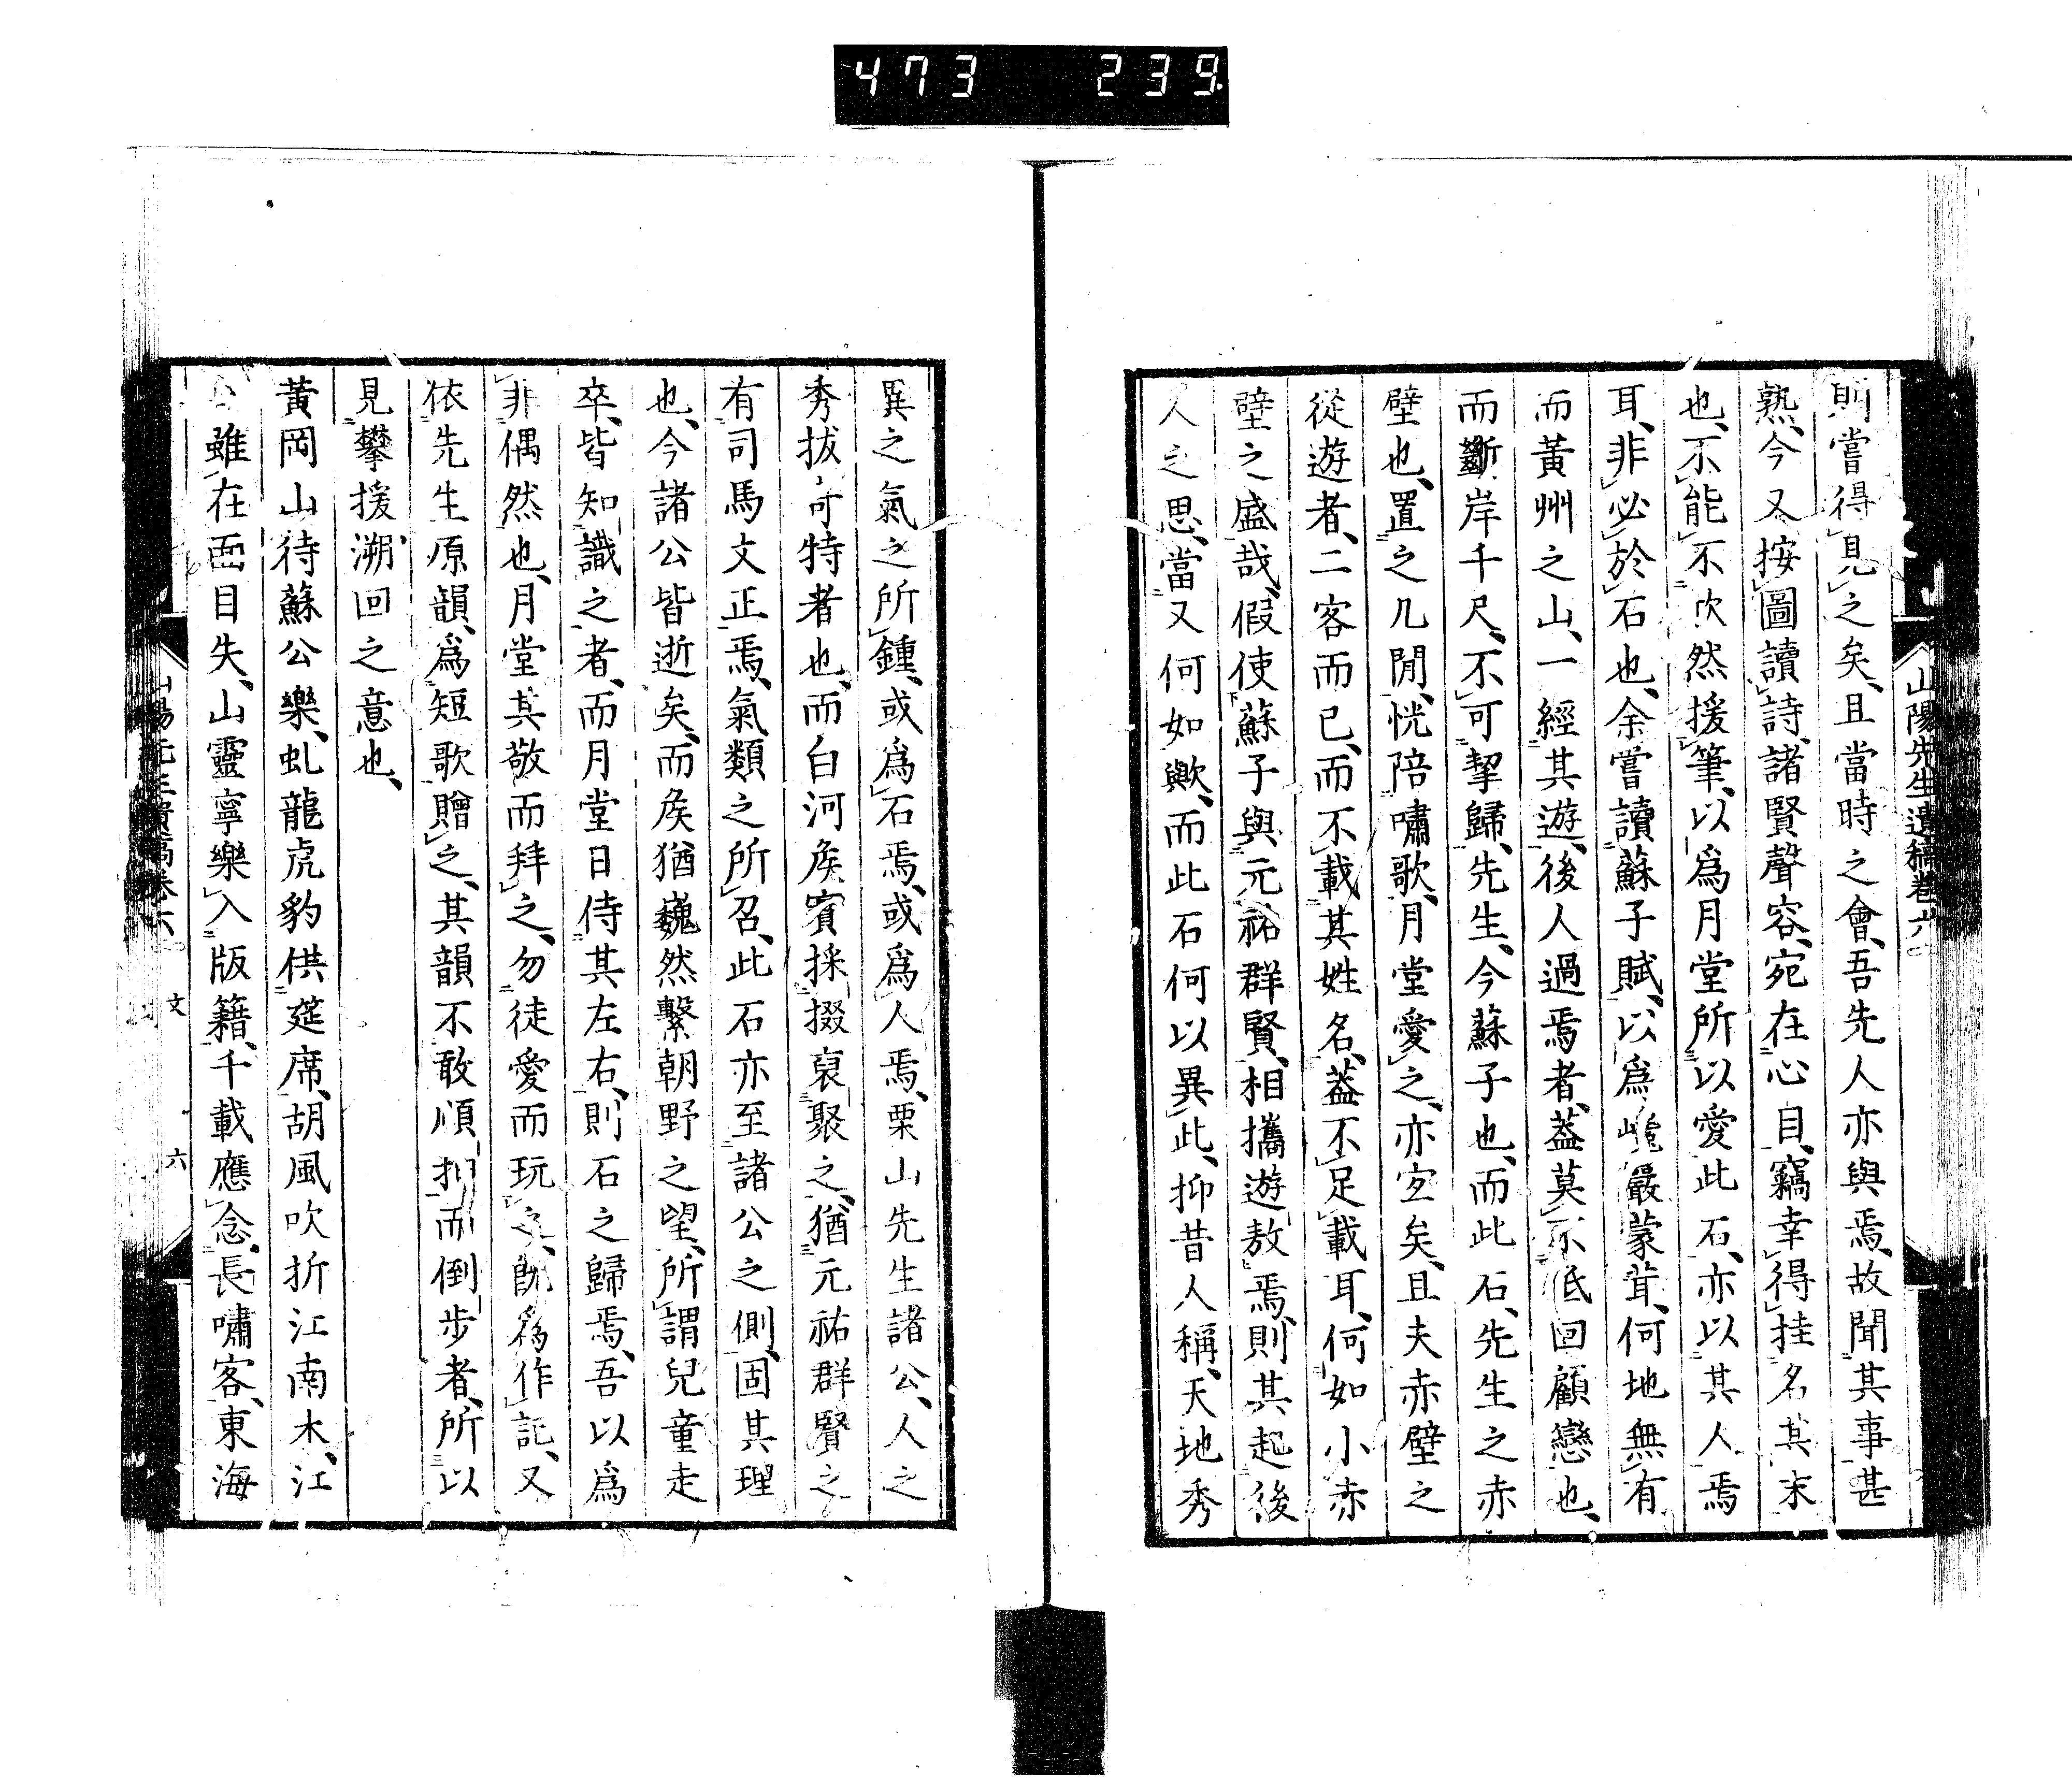 473 239
山陽先生遺稿卷六
則嘗得見之矣、且當時之會、吾先人亦與焉、故聞其事甚
熟、今又按圖讀詩、諸賢聲容、宛在心目、竊幸得挂名其末
也、不能不欣然援筆、以爲月堂所以愛此石、亦以其人焉
耳、非必於石也、余嘗讀蘇子賦、以爲巉巖蒙茸、何地無有
而黃州之山、一經其遊、後人過焉者、蓋莫不低回顧戀也、
而斷岸千尺、不可挈歸、先生、今蘇子也、而此石、先生之赤
壁也、置之几閒、恍陪嘯歌、月堂愛之、亦宜矣、且夫赤壁之
從遊者、二客而已、而不載其姓名、蓋不足載耳、何如小赤
壁之盛哉、假使蘇子與元祐群賢、相攜遊敖焉、則其起後
人之思、當又何如歟、而此石何以異此、抑昔人稱、天地秀
異之氣之所鍾、或爲石焉、或爲人焉、栗山先生諸公、人之
秀拔奇特者也、而白河矦賓採掇裒聚之、猶元祐群賢之
有司馬文正焉、氣類之所召、此石亦至諸公之側、固其理
也、今諸公皆逝矣、而矦猶巍然繫朝野之望、所謂兒童走
卒、皆知識之者、而月堂日侍其左右、則石之歸焉、吾以爲
非偶然也、月堂其敬而拜之、勿徒愛而玩之、既爲作記、又
依先生原韻、爲短歌贈之、其韻不敢順押而倒步者、所以
見攀援溯回之意也、
黃岡山待蘇公樂、虬龍虎豹供筵席、胡風吹折江南木、江
雖在面目失、山靈寧樂入版籍、千載應念長嘯客、東海
文 六